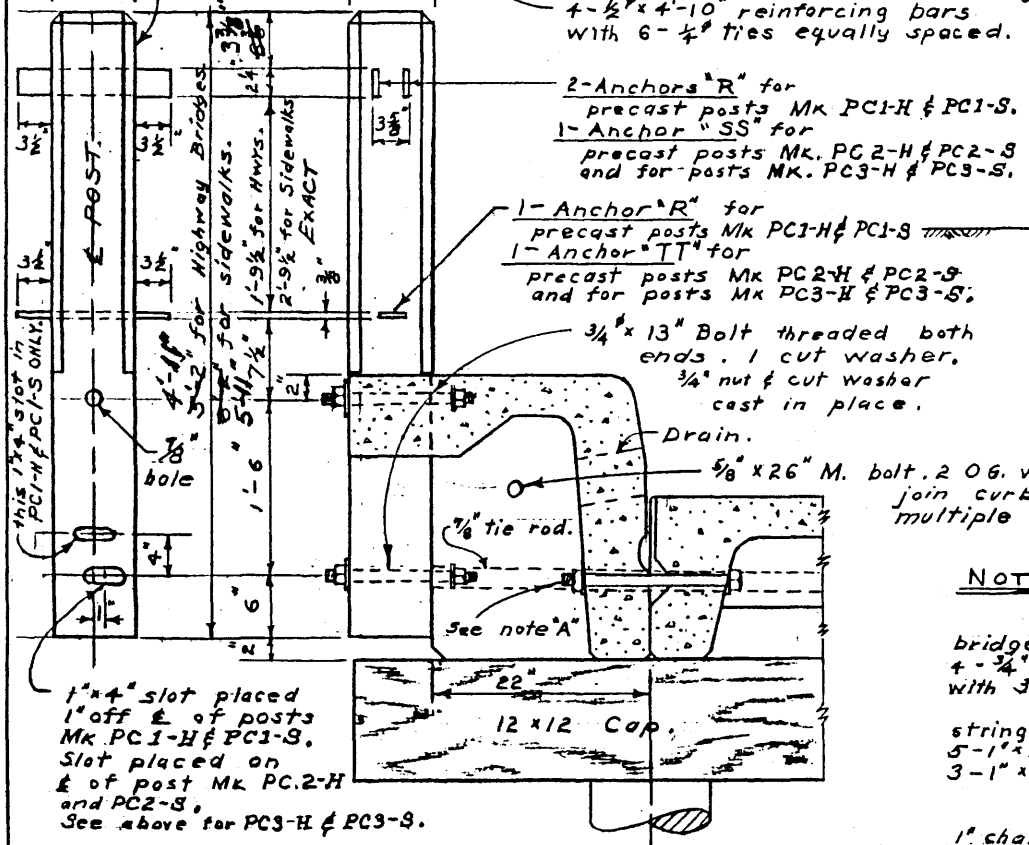 4-½"ᶲ x 4'-10" reinforcing bars
with 6-¼"ᶲ ties equally spaced.
2-Anchors "R" for
precast posts Mk PC1-H & PC1-S.
1-Anchor "SS" for
precast posts Mk. PC2-H & PC2-S
and for posts Mk. PC3-H & PC3-S.
1-Anchor "R" for
precast posts Mk PC1-H & PC1-S
1-Anchor "TT" for
precast posts Mk PC2-H & PC2-S
and for posts Mk PC3-H & PC3-S.
¾"ᶲ x 13" Bolt threaded both
ends. 1 cut washer.
¾" nut & cut washer
cast in place.
Drain.
⅝" x 26" M. bolt. 2 O.G. w
join curb
multiple
⅞" tie rod.
See note "A"
NOT
bridge
4-¾"
with 3
string
5-1" x
3-1" x
1" cha
22"
12 x 12 Cap.
℄ POST.
3½"
3½"
3½"
3½"
3½"
⅞"
hole
this 1"x4" slot in
PC1-H & PC1-S ONLY.
4"
1"
for Highway Bridges.
for sidewalks.
1'-9½" for Hwys.
2'-9½" for Sidewalks
EXACT
⅜"
7½"
2"
1'-6"
6"
2"
1"x4" slot placed
1" off ℄ of posts
Mk PC1-H & PC1-S.
Slot placed on
℄ of post Mk PC.2-H
and PC2-S.
See above for PC3-H & PC3-S.